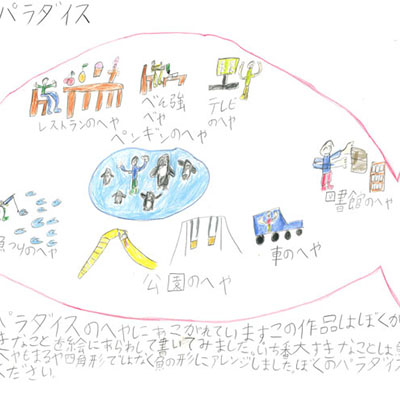 パラダイス
レストランのへや
べん強
べや
テレビ
のへや
ペンギンのへや
図書館のへや
魚つりのへや
公園のへや
車のへや
パラダイスのへやにあこがれていますこの作品はぼくが
きなことを絵にあらわして書いてみました。いち番大すきなことは
へやもまるや四角形ではなく魚の形にアレンジしました。ぼくのパラダイス
ください。